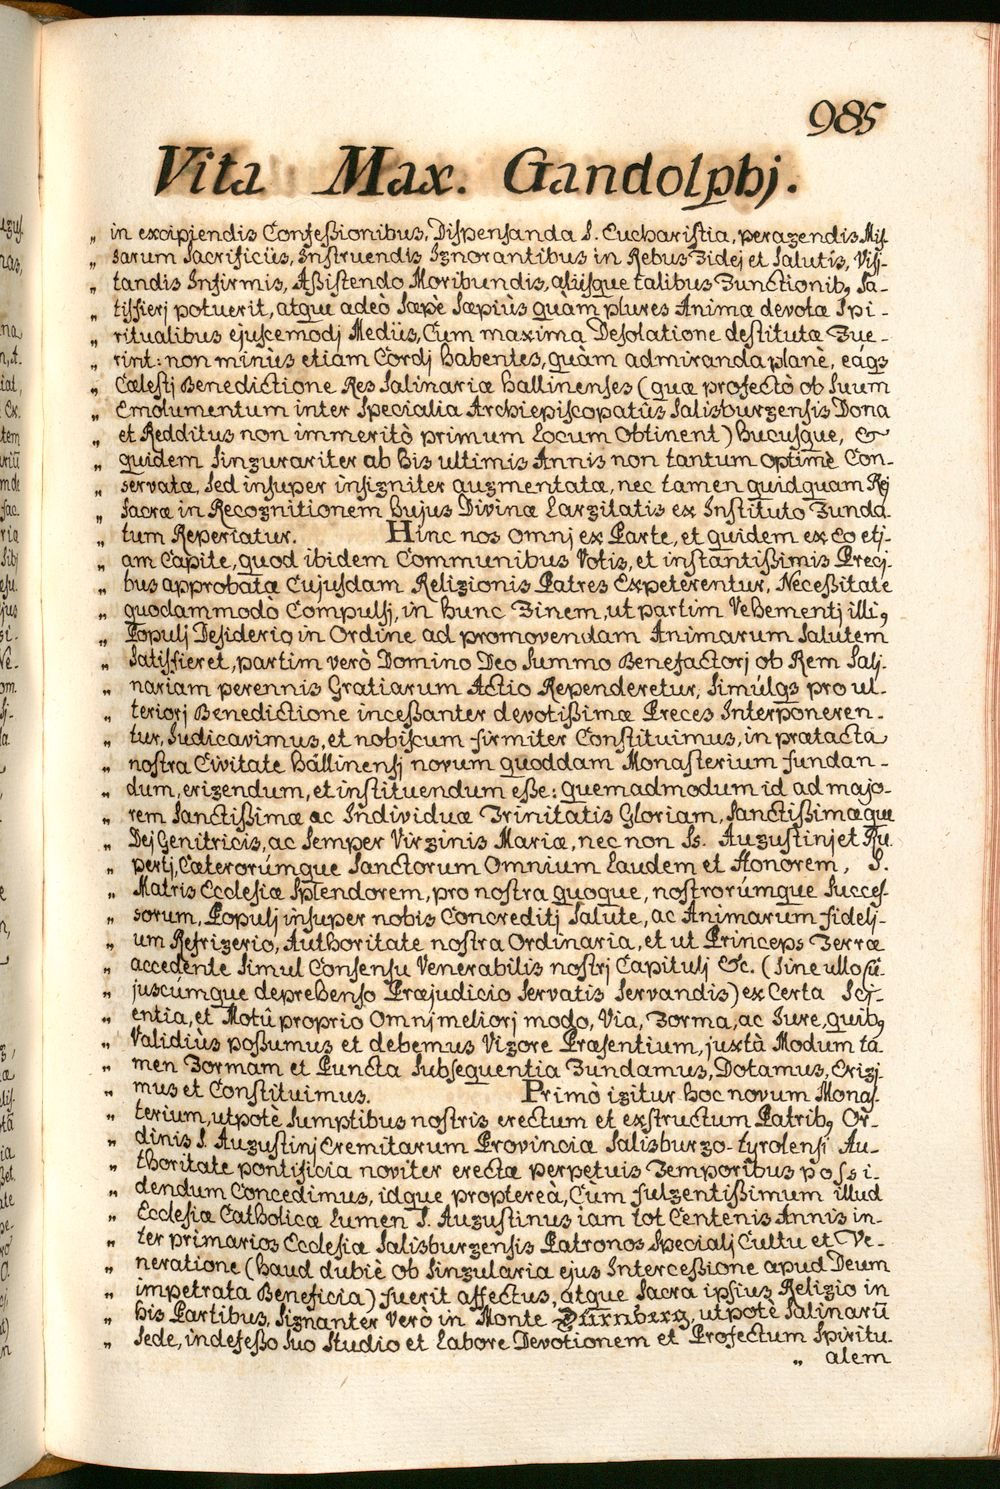 985
Vita Max. Gandolphj.
„ in excipiendis Confeßionibus, Dispensanda S. Eucharistia, peragendis Mis-
„ sarum Sacrificiis, Instruendis Ignorantibus in Rebus Fidej et Salutis, Visi-
„ tandis Infirmis, Aßistendo Moribundis, aliisque talibus Functionib9 Sa-
„ tisfieri potuerit, atque adeò Sæpè Sæpiùs quàm plures Animæ devotæ Spi-
„ ritualibus ejuscemodj Mediis, Cum maxima Desolatione destitutæ Fue-
„ rint: non minus etiam Cordj habentes, quàm admiranda planè, eáqs
„ Cœlestj Benedictione Res Salinariæ hallinenses (quæ profectò ob Suum
„ Emolumentum inter Specialia Archiepiscopatûs Salisburgensis Dona
„ et Redditus non immeritò primum Locum Obtinent) hucusque, &
„ quidem Singurariter ab his ultimis Annis non tantum optimè Con-
„ servatæ, Sed insuper insigniter augmentatæ, nec tamen quidquam Rej
„ Sacræ in Recognitionem hujus Divinæ Largitatis ex Instituto Funda
„ tum Reperiatur. Hinc nos Omnj ex Parte, et quidem ex Eo etj-
„ am Capite, quod ibidem Communibus Votis, et instantißimis Preci-
„ bus approbatæ Cujusdam Religionis Patres Expeterentur, Neceßitate
„ quodammodò Compulsj, in hunc Finem, ut partim Vehementj illi9
„ Populj Desiderio in Ordine ad promovendam Animarum Salutem
„ Satisfieret, partim verò Domino Deo Summo Benefactorj ob Rem Salj-
„ nariam perennis Gratiarum Actio Rependeretur, Simúlqs pro ul-
„ teriorj Benedictione inceßanter devotißimæ Preces Interponeren-
„ tur, Judicavimus, et nobiscum firmiter Constituimus, in prætacta
„ nostra Civitate hállinensj novum quoddam Monasterium fundan-
„ dum, erigendum, et instituendum eße: quemadmodum id ad majo-
„ rem Sanctißimæ ac Individuæ Trinitatis Gloriam, Sanctißimæque
„ Dej Genitricis, ac Semper Virginis Mariæ, nec non Ss. Augustinj et Ru-
„ pertj, Cæterorúmque Sanctorum Omnium Laudem et Honorem, S.
„ Matris Ecclesiæ Splendorem, pro nostra quoque, nostrorúmque Succes-
„ sorum, Populj insuper nobis Concreditj Salute, ac Animarum fidelj-
„ um Refrigerio, Authoritate nostra Ordinaria, et ut Princeps Terræ
„ accedente Simul Consensu Venerabilis nostrj Capitulj &c. (Sine ullo cu-
„ juscúmque deprehenso Præjudicio Servatis Servandis) ex Certa Scj-
„ entia, et Motû proprio Omnj meliorj modo, Via, Forma, ac Jure, quib9
„ Validiùs poßumus et debemus Vigore Præsentium, juxtà Modum ta
„ men Formam et Puncta Subsequentia Fundamus, Dotamus, Erigi-
„ mus et Constituimus. Primò igitur hoc novum Monas-
„ terium, utpotè Sumptibus nostris erectum et exstructum Patrib9 Or-
„ dinis S. Augustinj Eremitarum Provinciæ Salisburgo-tyrolensj Au-
„ thoritate pontificia noviter erectæ perpetuis Temporibus possi-
„ dendum Concedimus, idque proptereà, Cùm fulgentißimum illud
„ Ecclesiæ Catholicæ Lumen S. Augustinus iam tot Centenis Annis in-
„ ter primarios Ecclesiæ Salisburgensis Patronos Specialj Cultu et Ve-
„ neratione (haud dubiè ob Singularia ejus Interceßione apud Deum
„ impetrata Beneficia) fuerit affectus, atque Sacra ipsius Religio in
„ his Partibus, Signanter Verò in Monte Dürnberg, utpotè Salinarū
„ Sede, indefeßo Suo Studio et Labore Devotionem et Profectum Spiritu-
„ alem